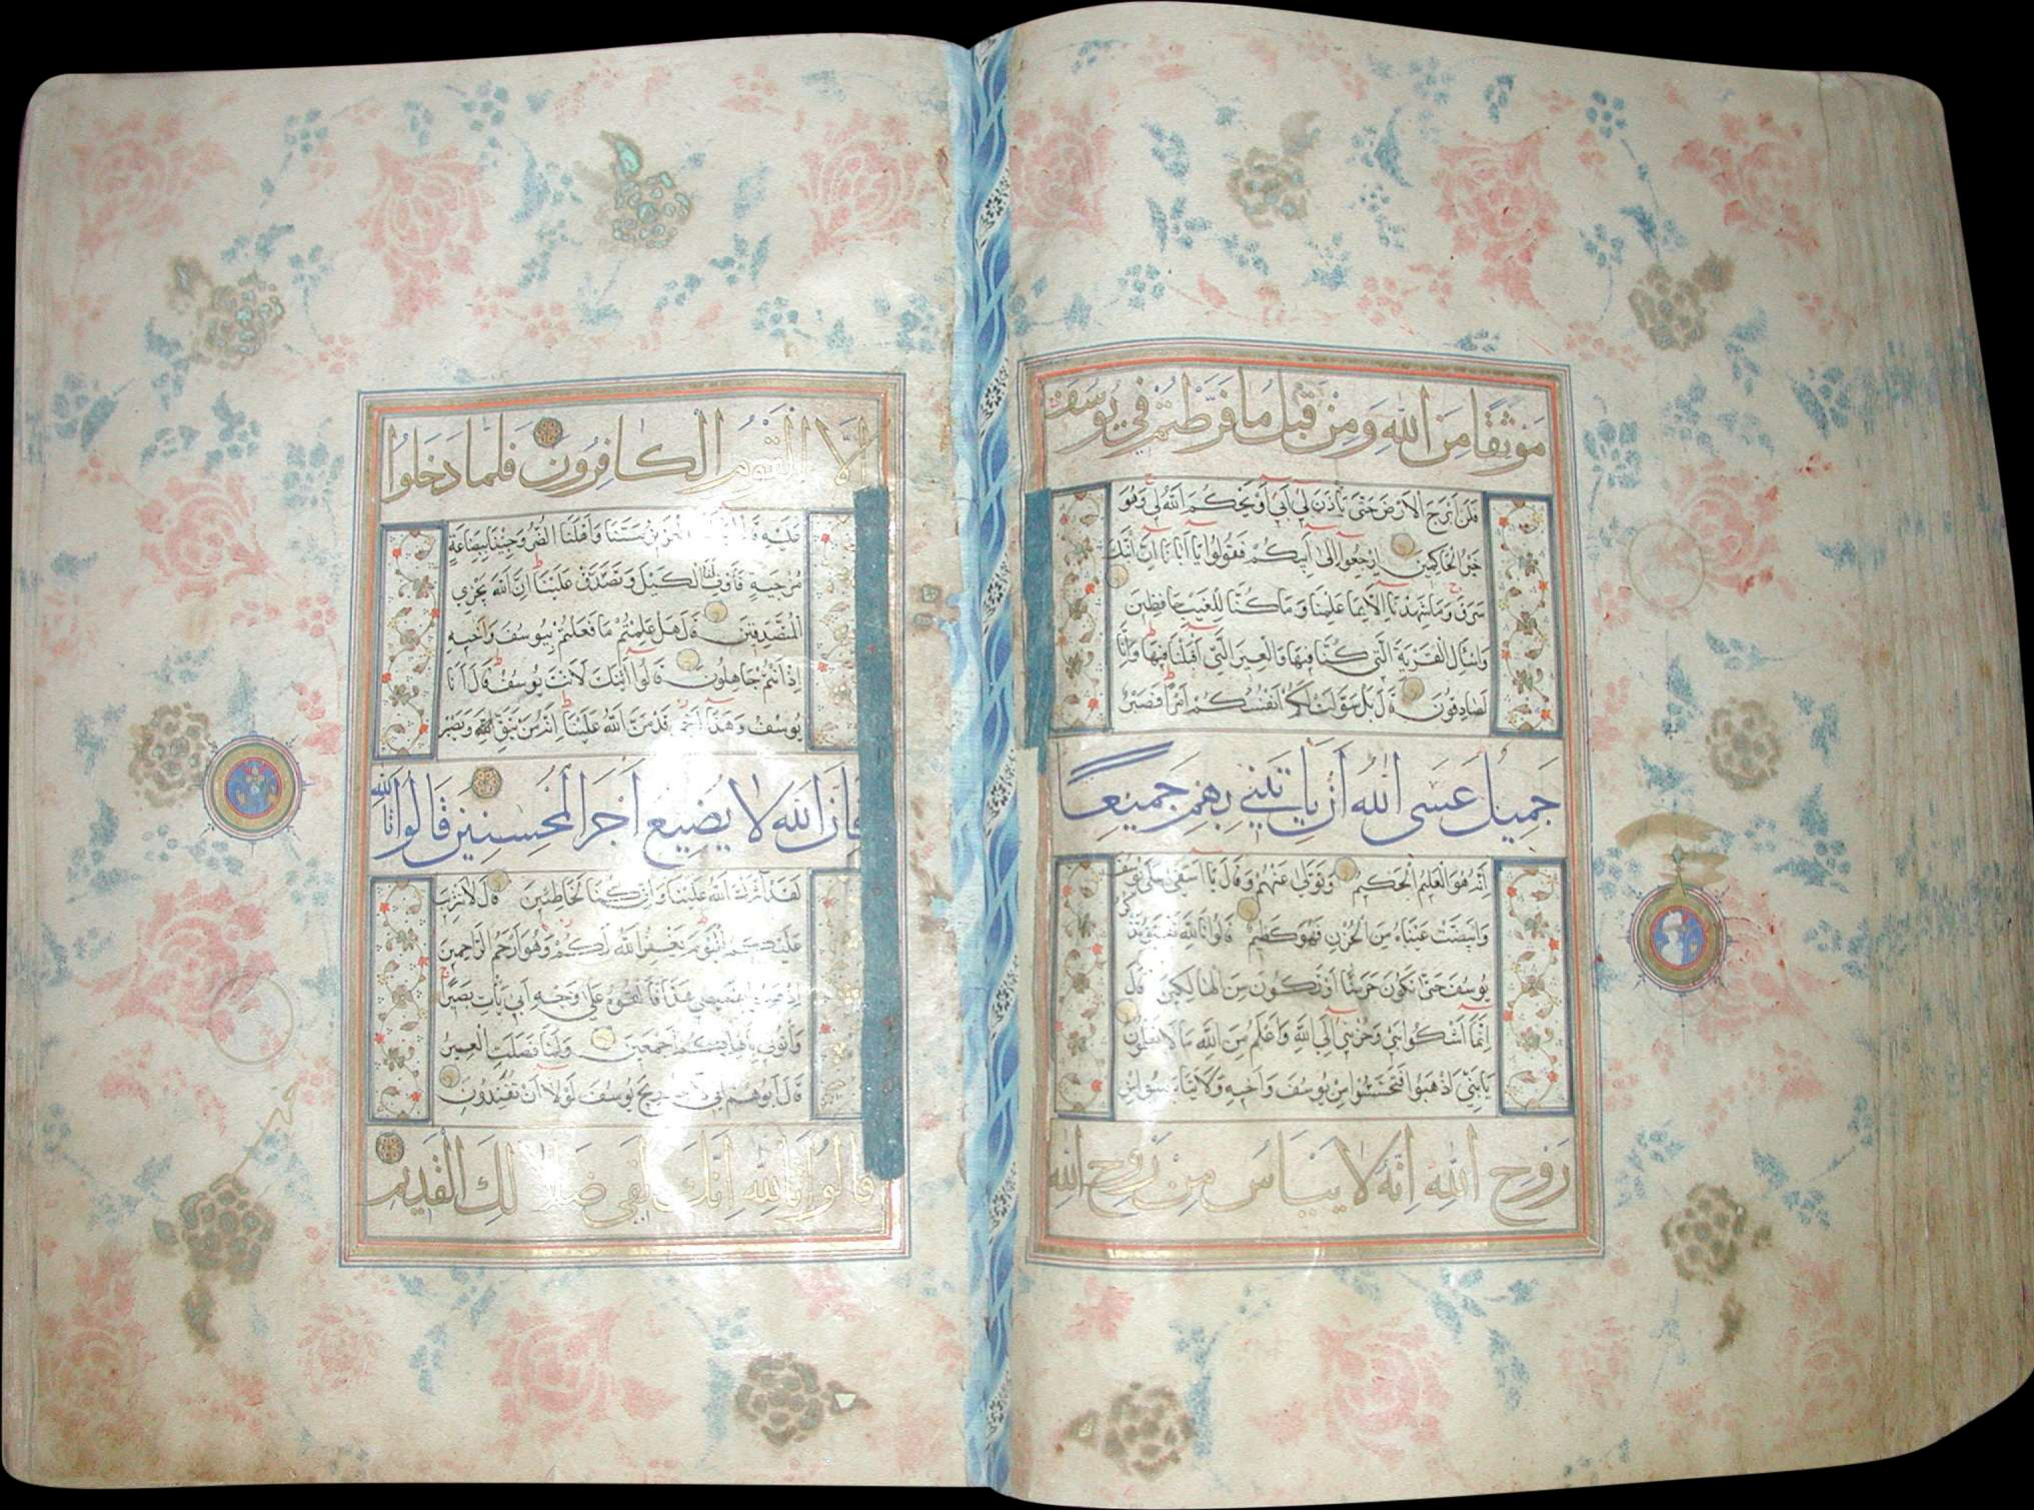 مَوْثِقًا مِنَ اللَّهِ وَمِنْ قَبْلُ مَا فَرَّطْتُمْ فِي يُوسُفَ
فَلَنْ أَبْرَحَ الْأَرْضَ حَتَّى يَأْذَنَ لِي أَبِي أَوْ يَحْكُمَ اللَّهُ لِي وَهُوَ
خَيْرُ الْحَاكِمِينَ ارْجِعُوا إِلَى أَبِيكُمْ فَقُولُوا يَا أَبَانَا إِنَّ ابْنَكَ
سَرَقَ وَمَا شَهِدْنَا إِلَّا بِمَا عَلِمْنَا وَمَا كُنَّا لِلْغَيْبِ حَافِظِينَ
وَاسْأَلِ الْقَرْيَةَ الَّتِي كُنَّا فِيهَا وَالْعِيرَ الَّتِي أَقْبَلْنَا فِيهَا وَإِنَّا
لَصَادِقُونَ قَالَ بَلْ سَوَّلَتْ لَكُمْ أَنْفُسُكُمْ أَمْرًا فَصَبْرٌ
جَمِيلٌ عَسَى اللَّهُ أَنْ يَأْتِيَنِي بِهِمْ جَمِيعًا
إِنَّهُ هُوَ الْعَلِيمُ الْحَكِيمُ وَتَوَلَّى عَنْهُمْ وَقَالَ يَا أَسَفَى عَلَى يُوسُفَ
وَابْيَضَّتْ عَيْنَاهُ مِنَ الْحُزْنِ فَهُوَ كَظِيمٌ قَالُوا تَاللَّهِ تَفْتَؤُ تَذْكُرُ
يُوسُفَ حَتَّى تَكُونَ حَرَضًا أَوْ تَكُونَ مِنَ الْهَالِكِينَ قَالَ
إِنَّمَا أَشْكُو بَثِّي وَحُزْنِي إِلَى اللَّهِ وَأَعْلَمُ مِنَ اللَّهِ مَا لَا تَعْلَمُونَ
يَا بَنِيَّ اذْهَبُوا فَتَحَسَّسُوا مِنْ يُوسُفَ وَأَخِيهِ وَلَا تَيْأَسُوا مِنْ
رَوْحِ اللَّهِ إِنَّهُ لَا يَيْأَسُ مِنْ رَوْحِ اللَّهِ
إِلَّا الْقَوْمُ الْكَافِرُونَ فَلَمَّا دَخَلُوا
عَلَيْهِ مَسَّنَا وَأَهْلَنَا الضُّرُّ وَجِئْنَا بِبِضَاعَةٍ
مُزْجَيةٍ فَأَوْفِ لَنَا الْكَيْلَ وَتَصَدَّقْ عَلَيْنَا إِنَّ اللَّهَ يَجْزِي
الْمُتَصَدِّقِينَ قَالَ هَلْ عَلِمْتُمْ مَا فَعَلْتُمْ بِيُوسُفَ وَأَخِيهِ
إِذْ أَنْتُمْ جَاهِلُونَ قَالُوا أَئِنَّكَ لَأَنْتَ يُوسُفُ قَالَ أَنَا
يُوسُفُ وَهَذَا أَخِي قَدْ مَنَّ اللَّهُ عَلَيْنَا إِنَّهُ مَنْ يَتَّقِ اللَّهَ وَيَصْبِرْ
فَإِنَّ اللَّهَ لَا يُضِيعُ أَجْرَ الْمُحْسِنِينَ قَالُوا تَاللَّهِ
لَقَدْ آثَرَكَ اللَّهُ عَلَيْنَا وَإِنْ كُنَّا لَخَاطِئِينَ قَالَ لَا تَثْرِيبَ
عَلَيْكُمُ الْيَوْمَ يَغْفِرُ اللَّهُ لَكُمْ وَهُوَ أَرْحَمُ الرَّاحِمِينَ
بِقَمِيصِي هَذَا فَأَلْقُوهُ عَلَى وَجْهِ أَبِي يَأْتِ بَصِيرًا
وَأْتُونِي بِأَهْلِكُمْ أَجْمَعِينَ وَلَمَّا فَصَلَتِ الْعِيرُ
قَالَ أَبُوهُمْ إِنِّي رِيحَ يُوسُفَ لَوْلَا أَنْ تُفَنِّدُونِ
قَالُوا تَاللَّهِ إِنَّكَ لَفِي ضَلَالِكَ الْقَدِيمِ